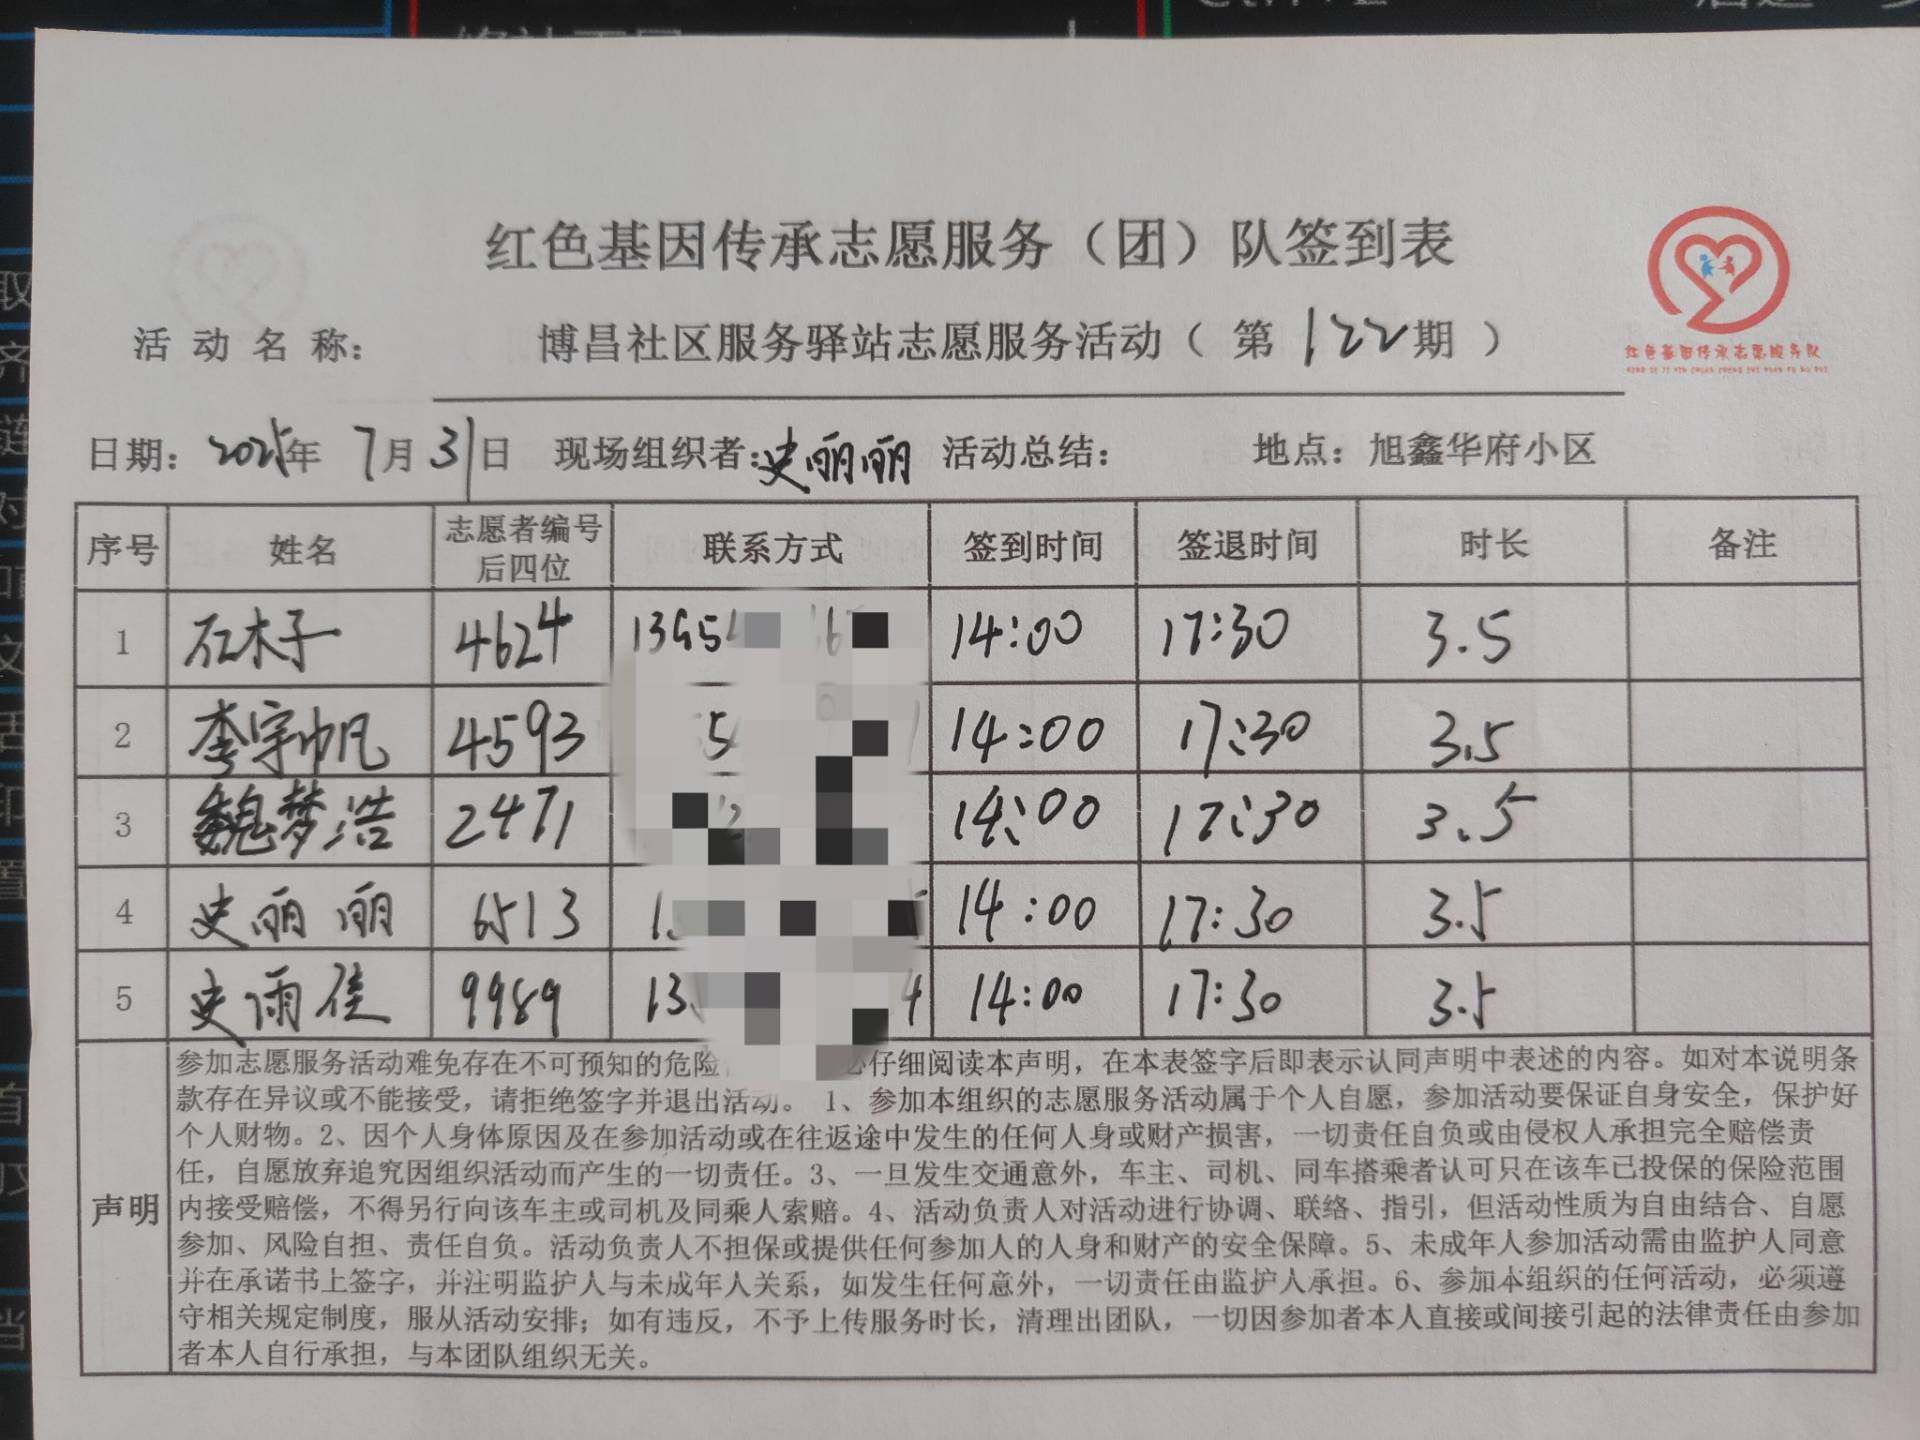 红色基因传承志愿服务（团）队签到表
活动名称： 博昌社区服务驿站志愿服务活动（第122期）
红色基因传承志愿服务队
HONG SE JI YIN CHUAN CHENG ZHI YUAN FU WU DUI
日期：2025年 7月31日 现场组织者：史丽丽 活动总结： 地点：旭鑫华府小区
序号 姓名 志愿者编号后四位 联系方式 签到时间 签退时间 时长 备注
1 石木子 4624 14:00 17:30 3.5
2 李宇帆 4593 14:00 17:30 3.5
3 魏梦浩 2471 14:00 17:30 3.5
4 史丽丽 6513 14:00 17:30 3.5
5 史雨佳 9989 14:00 17:30 3.5
声明
参加志愿服务活动难免存在不可预知的危险 仔细阅读本声明，在本表签字后即表示认同声明中表述的内容。如对本说明条
款存在异议或不能接受，请拒绝签字并退出活动。 1、参加本组织的志愿服务活动属于个人自愿，参加活动要保证自身安全，保护好
个人财物。2、因个人身体原因及在参加活动或在往返途中发生的任何人身或财产损害，一切责任自负或由侵权人承担完全赔偿责
任，自愿放弃追究因组织活动而产生的一切责任。3、一旦发生交通意外，车主、司机、同车搭乘者认可只在该车已投保的保险范围
内接受赔偿，不得另行向该车主或司机及同乘人索赔。4、活动负责人对活动进行协调、联络、指引，但活动性质为自由结合、自愿
参加、风险自担、责任自负。活动负责人不担保或提供任何参加人的人身和财产的安全保障。5、未成年人参加活动需由监护人同意
并在承诺书上签字，并注明监护人与未成年人关系，如发生任何意外，一切责任由监护人承担。6、参加本组织的任何活动，必须遵
守相关规定制度，服从活动安排；如有违反，不予上传服务时长，清理出团队，一切因参加者本人直接或间接引起的法律责任由参加
者本人自行承担，与本团队组织无关。